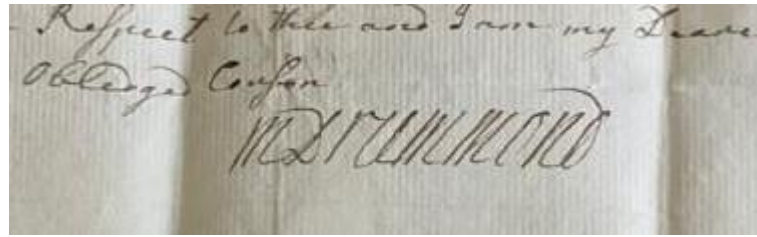 - Respect to thee and I am my Deare
Obledged Couson
MDrummond